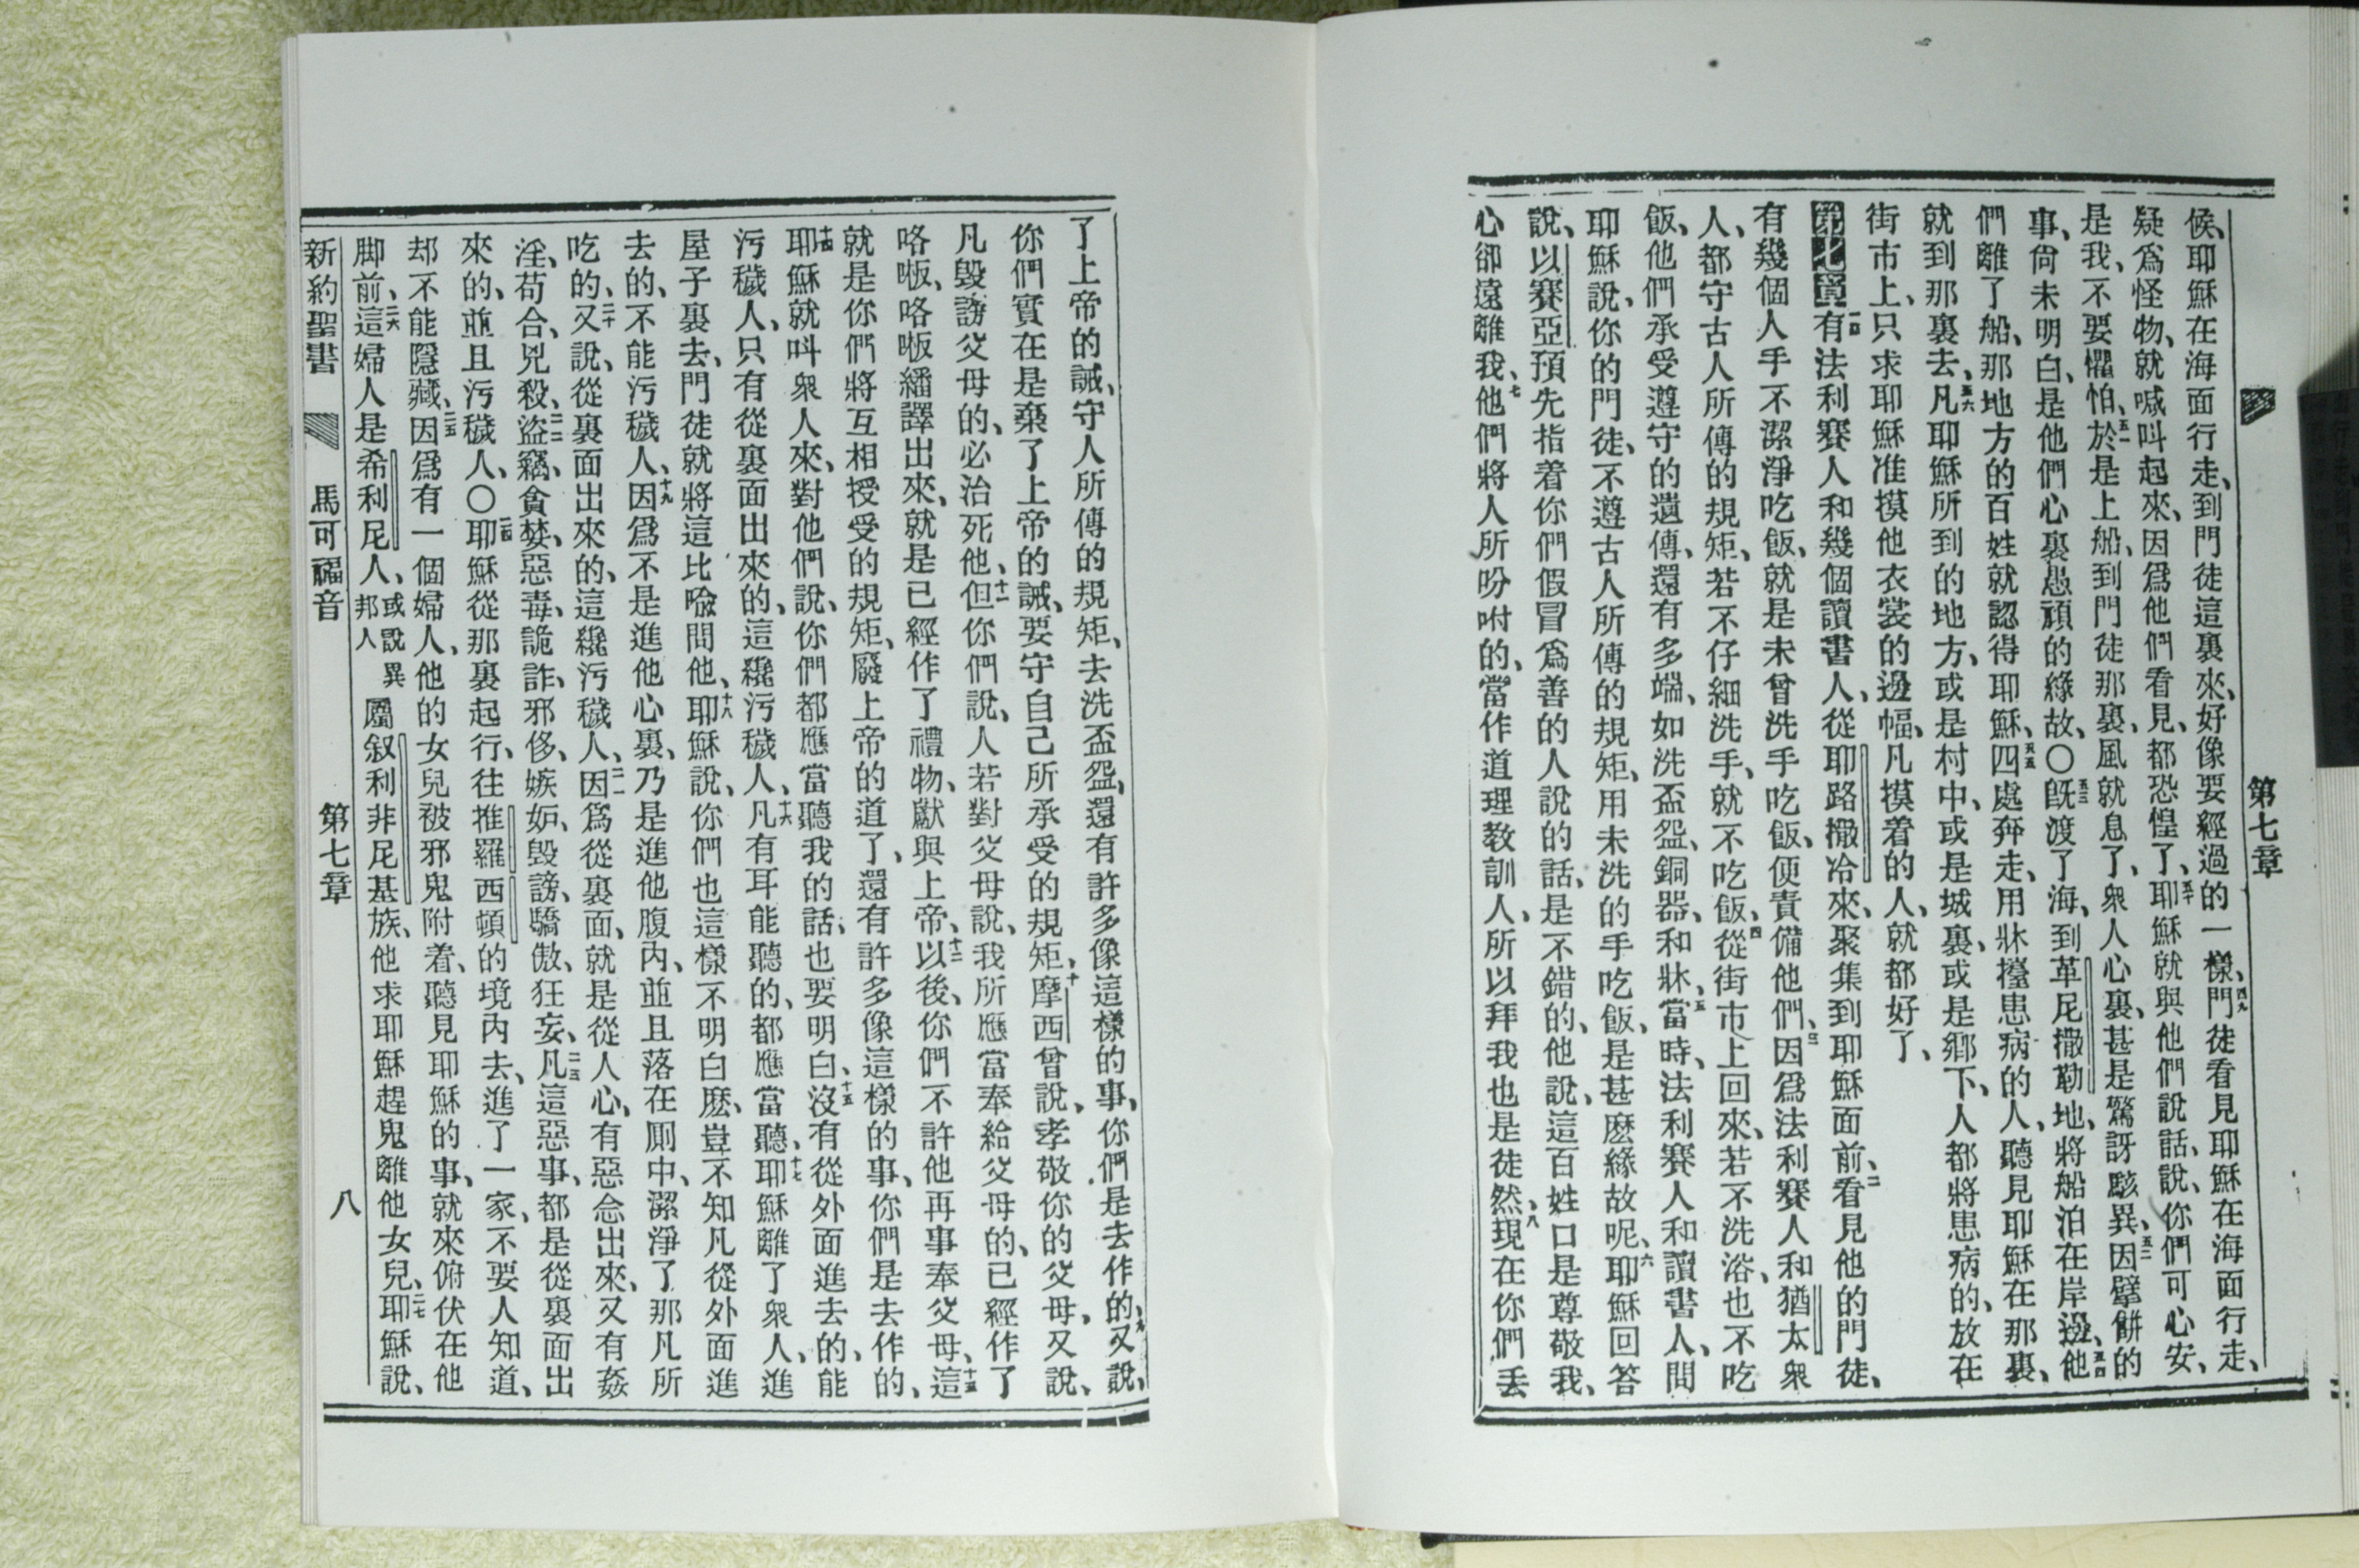 第七章
候、耶穌在海面行走、到門徒這裏來、好像要經過的一樣、四九門徒看見耶穌在海面行走、
疑爲怪物、就喊叫起來、因爲他們看見、都恐惶了、五十耶穌就與他們說話、說、你們可心安、
是我、不要懼怕、五一於是上船、到門徒那裏、風就息了、衆人心裏、甚是驚訝駭異、五二因擘餅的
事、尙未明白、是他們心裏愚頑的緣故、〇五三旣渡了海、到革尼撒勒地、將船泊在岸邊、五四他
們離了船、那地方的百姓就認得耶穌、五五四處奔走、用牀擡患病的人、聽見耶穌在那裏、
就到那裏去、五六凡耶穌所到的地方、或是村中、或是城裏、或是鄉下、人都將患病的、放在
街市上、只求耶穌准摸他衣裳的邊幅、凡摸着的人、就都好了、
第七章一有法利賽人和幾個讀書人、從耶路撒冷來、聚集到耶穌面前、二看見他的門徒、
有幾個人手不潔淨吃飯、就是未曾洗手吃飯、便責備他們、三因爲法利賽人和猶太衆
人、都守古人所傳的規矩、若不仔細洗手、就不吃飯、四從街市上回來、若不洗浴、也不吃
飯、他們承受遵守的遺傳、還有多端、如洗盃盌、銅器、和牀、五當時、法利賽人和讀書人、問
耶穌說、你的門徒、不遵古人所傳的規矩、用未洗的手吃飯、是甚麽緣故呢、六耶穌回答
說、以賽亞預先指着你們假冒爲善的人說的話、是不錯的、他說、這百姓口是尊敬我、
心卻遠離我、七他們將人所吩咐的、當作道理敎訓人、所以拜我也是徒然、八現在你們丟
了上帝的誡、守人所傳的規矩、去洗盃盌、還有許多像這樣的事、你們是去作的、九又說、
你們實在是棄了上帝的誡、要守自己所承受的規矩、十摩西曾說、孝敬你的父母、又說、
凡毀謗父母的、必治死他、十一但你們說、人若對父母說、我所應當奉給父母的、已經作了
咯㗑、咯㗑繙譯出來、就是已經作了禮物、獻與上帝、十二以後、你們不許他再事奉父母、十三這
就是你們將互相授受的規矩、廢上帝的道了、還有許多像這樣的事、你們是去作的、
十四耶穌就叫衆人來、對他們說、你們都應當聽我的話、也要明白、十五沒有從外面進去的、能
污穢人、只有從裏面出來的、這纔污穢人、十六凡有耳能聽的、都應當聽、十七耶穌離了衆人、進
屋子裏去、門徒就將這比喩問他、十八耶穌說、你們也這樣不明白麽、豈不知凡從外面進
去的、不能污穢人、十九因爲不是進他心裏、乃是進他腹內、並且落在厠中、潔淨了那凡所
吃的、二十又說、從裏面出來的、這纔污穢人、二一因爲從裏面、就是從人心、有惡念出來、又有姦
淫、苟合、兇殺、二二盜竊、貪婪、惡毒、詭詐、邪侈、嫉妬、毀謗、驕傲、狂妄、二三凡這惡事、都是從裏面出
來的、並且污穢人、〇二四耶穌從那裏起行、往推羅西頓的境內去、進了一家、不要人知道、
却不能隱藏、二五因爲有一個婦人、他的女兒被邪鬼附着、聽見耶穌的事、就來俯伏在他
脚前、二六這婦人是希利尼人、或說異邦人屬叙利非尼基族、他求耶穌趕鬼離他女兒、二七耶穌說、
新約聖書 馬可福音 第七章 八